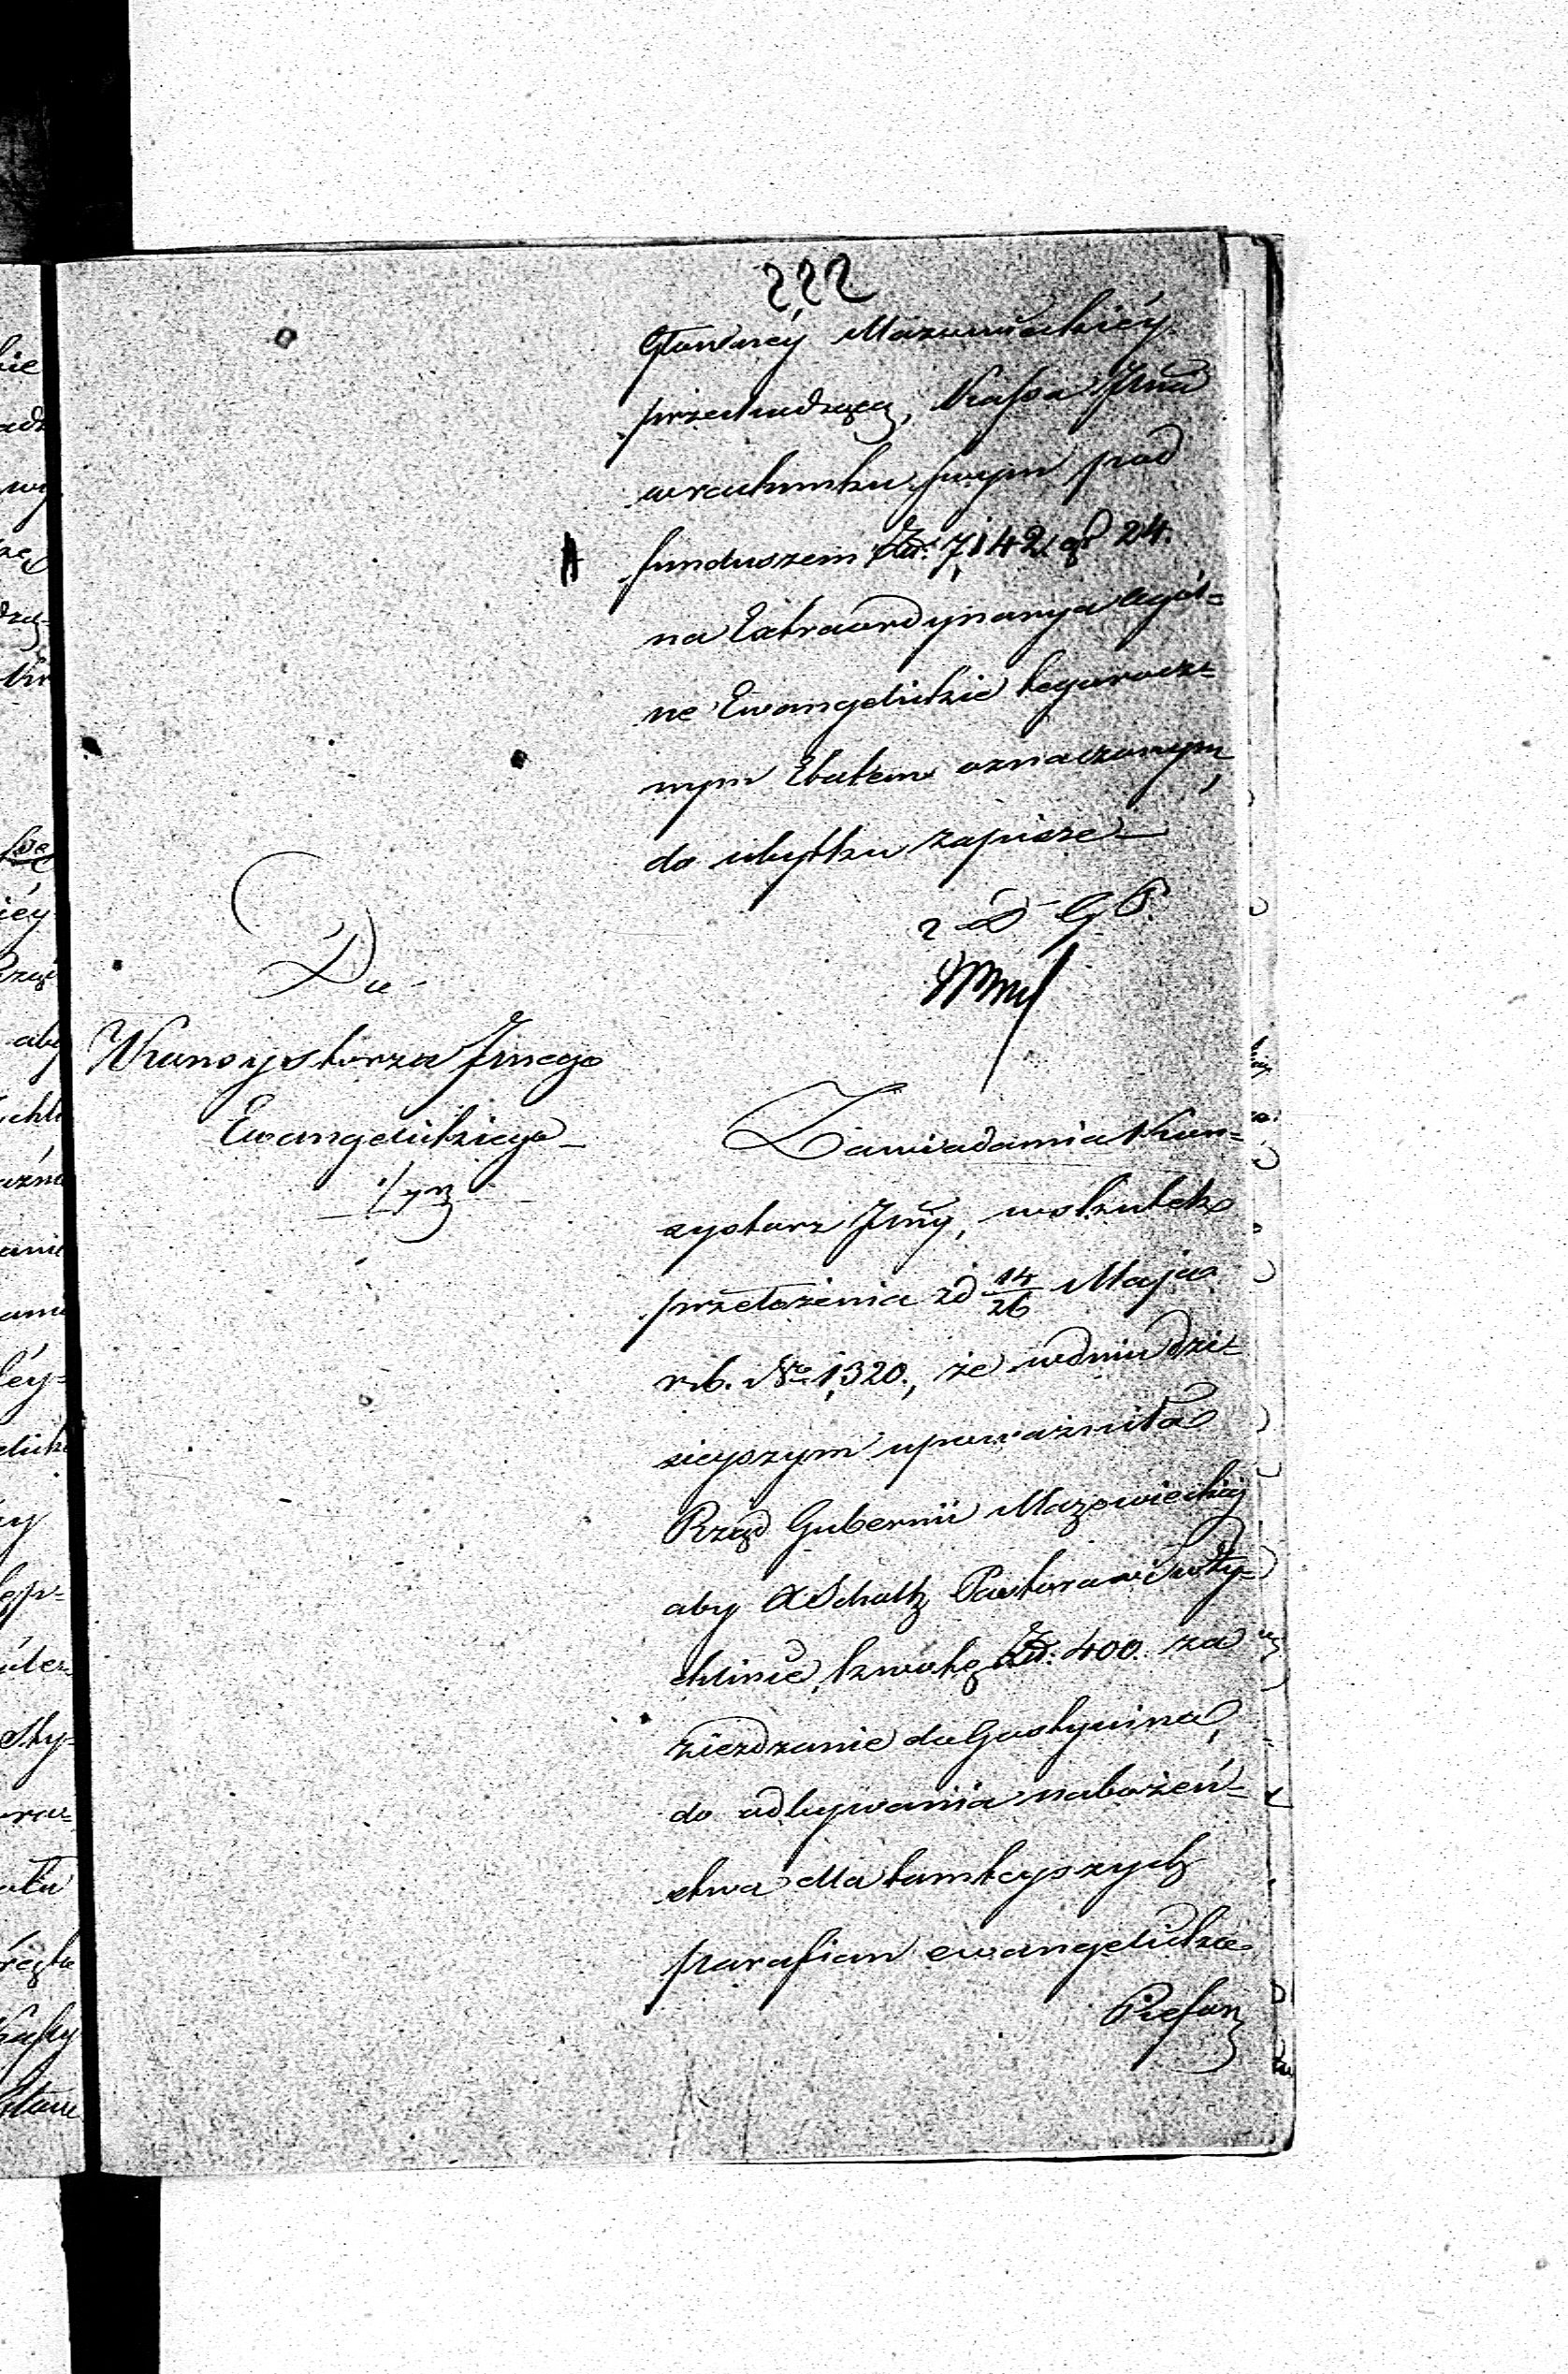 222
Główney Mazowieckiéy
przechodzącą, Kassa Jlna
w rachunku swym pod
funduszem Złt. 7,142 gr 24.
na Extraordynarya ogól-
ne Ewangelickie tegorocz-
nym Etatem oznaczonym,
do ubytku zapisze
Do
Konsystorza Jlnego
Ewangelickiego
Zawiadamia Kon-
systorz Jlny, w skutek
przełożenia z d 14/26 Maja
r.b. No 1,320., że w dniu dzi-
sieyszym upoważniła
Rząd Gubernii Mazowieckiej
aby X Scholtz Pastorowi w Iwły-
chlinie, kwotę Złt. 400. za
ziezdzanie do Gostynina,
do odbywania nabożeń-
stwa dla tamteyszych
parafian ewangelickie